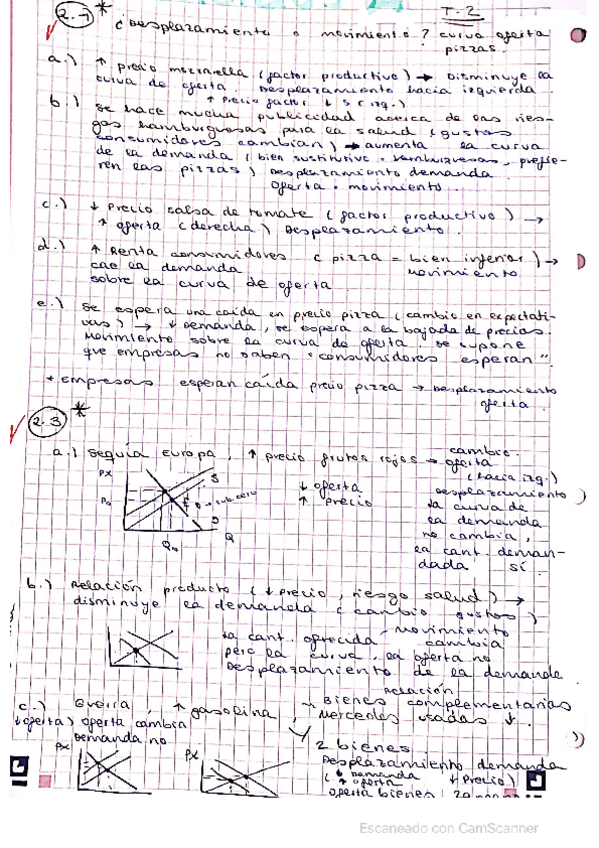 T-2
2.1 * ¿ Desplazamiento o movimiento? curva oferta
pizzas.
a.) ↑ precio mozzarella (factor productivo) → Disminuye la
curva de oferta. Desplazamiento hacia izquierda.
↑ precio factor ↓ S (izq.)
b.) Se hace mucha publicidad acerca de los ries-
gos hamburguesas para la salud (gustos
consumidores cambian) → aumenta la curva
de la demanda (bien sustitutivo = hamburguesas, prefie-
ren las pizzas) Desplazamiento demanda.
oferta = movimiento.
c.) ↓ Precio salsa de tomate (factor productivo) →
↑ oferta (derecha) Desplazamiento.
d.) ↑ Renta consumidores (pizza = bien inferior) →
cae la demanda movimiento
sobre la curva de oferta.
e.) Se espera una caída en precio pizza (cambio en expectati-
vas) → ↓ demanda, se espera a la bajada de precios.
Movimiento sobre la curva de oferta. Se supone
que empresas no saben "consumidores esperan".
* Empresas esperan caída precio pizza → Desplazamiento
oferta.
2.3 *
a.) Sequía Europa, ↑ precio frutos rojos → cambio
oferta
(hacia izq.)
Desplazamiento
↓ oferta
↑ precio
la curva de
la demanda
no cambia,
la cant. deman-
dada sí.
Px
S
D
Q
b.) Relación producto (↓ precio, riesgo salud) →
disminuye la demanda (cambio gustos)
- movimiento
la cant. ofrecida cambia
pero la curva, la oferta no
Desplazamiento de la demanda
c.) Guerra, ↑ gasolina, Relación
bienes complementarios
Mercedes usados ↓.
↓oferta) oferta cambia
Demanda no
Px
Px
2 bienes
Desplazamiento demanda
(↓ Demanda ↓ Precio)
↑ oferta
oferta bienes
Escaneado con CamScanner